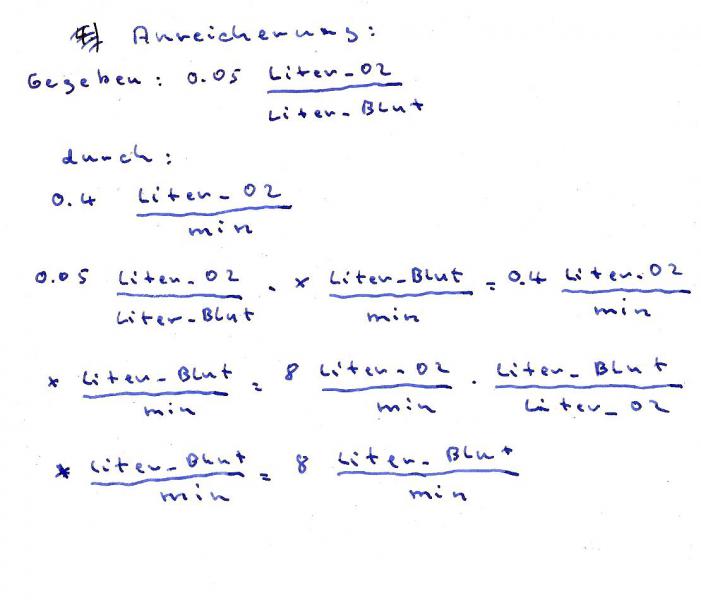 Anreicherung:
Gegeben: 0.05 Liter-O2 / Liter-Blut
durch:
0.4 Liter-O2 / min
0.05 Liter-O2 / Liter-Blut · x Liter-Blut / min = 0.4 Liter-O2 / min
x Liter-Blut / min = 8 Liter-O2 / min · Liter-Blut / Liter-O2
x Liter-Blut / min = 8 Liter-Blut / min